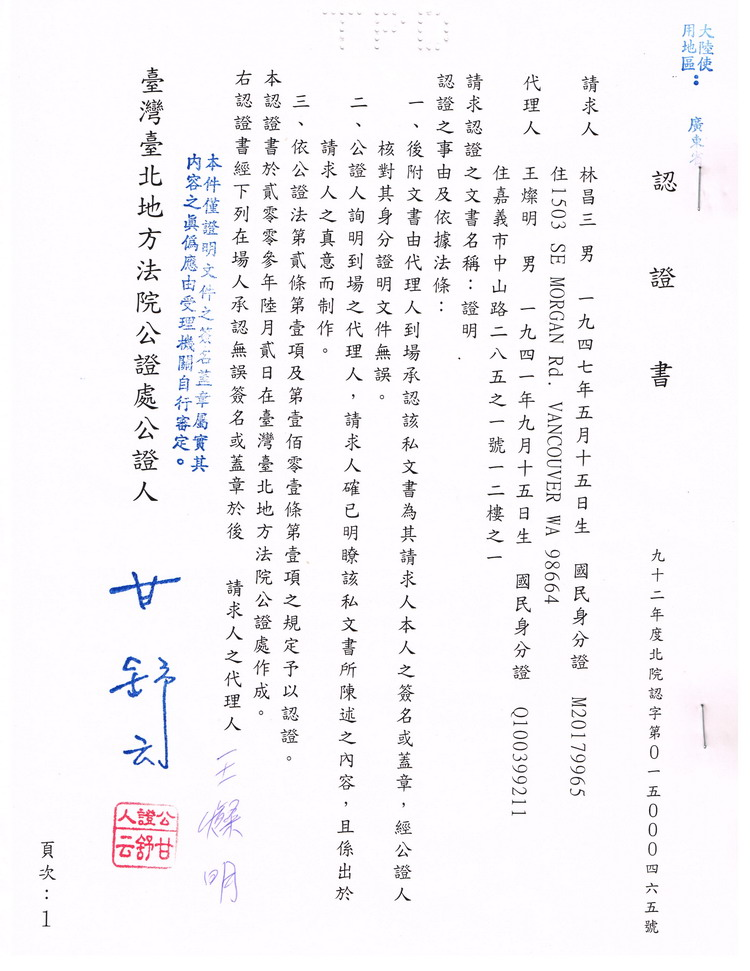 大陸使
用地區：
廣東省
認證書
九十二年度北院認字第０一五０００四六五號
請求人　林昌三　男　一九四七年五月十五日生　國民身分證　M20179965
住1503 SE MORGAN Rd. VANCOUVER WA 98664
代理人　王燦明　男　一九四一年九月十五日生　國民身分證　Q100399211
住嘉義市中山路二八五之一號一二樓之一
請求認證之文書名稱：證明
認證之事由及依據法條：
一、後附文書由代理人到場承認該私文書為其請求人本人之簽名或蓋章，經公證人
核對其身分證明文件無誤。
二、公證人詢明到場之代理人，請求人確已明瞭該私文書所陳述之內容，且係出於
請求人之真意而制作。
三、依公證法第貳條第壹項及第壹佰零壹條第壹項之規定予以認證。
本認證書於貳零零參年陸月貳日在臺灣臺北地方法院公證處作成。
右認證書經下列在場人承認無誤簽名或蓋章於後　請求人之代理人　王燦明
本件僅證明文件之簽名蓋章屬實其
內容之眞僞應由受理機關自行審定。
臺灣臺北地方法院公證處公證人　甘舒云
公證人
甘舒云
頁次：1